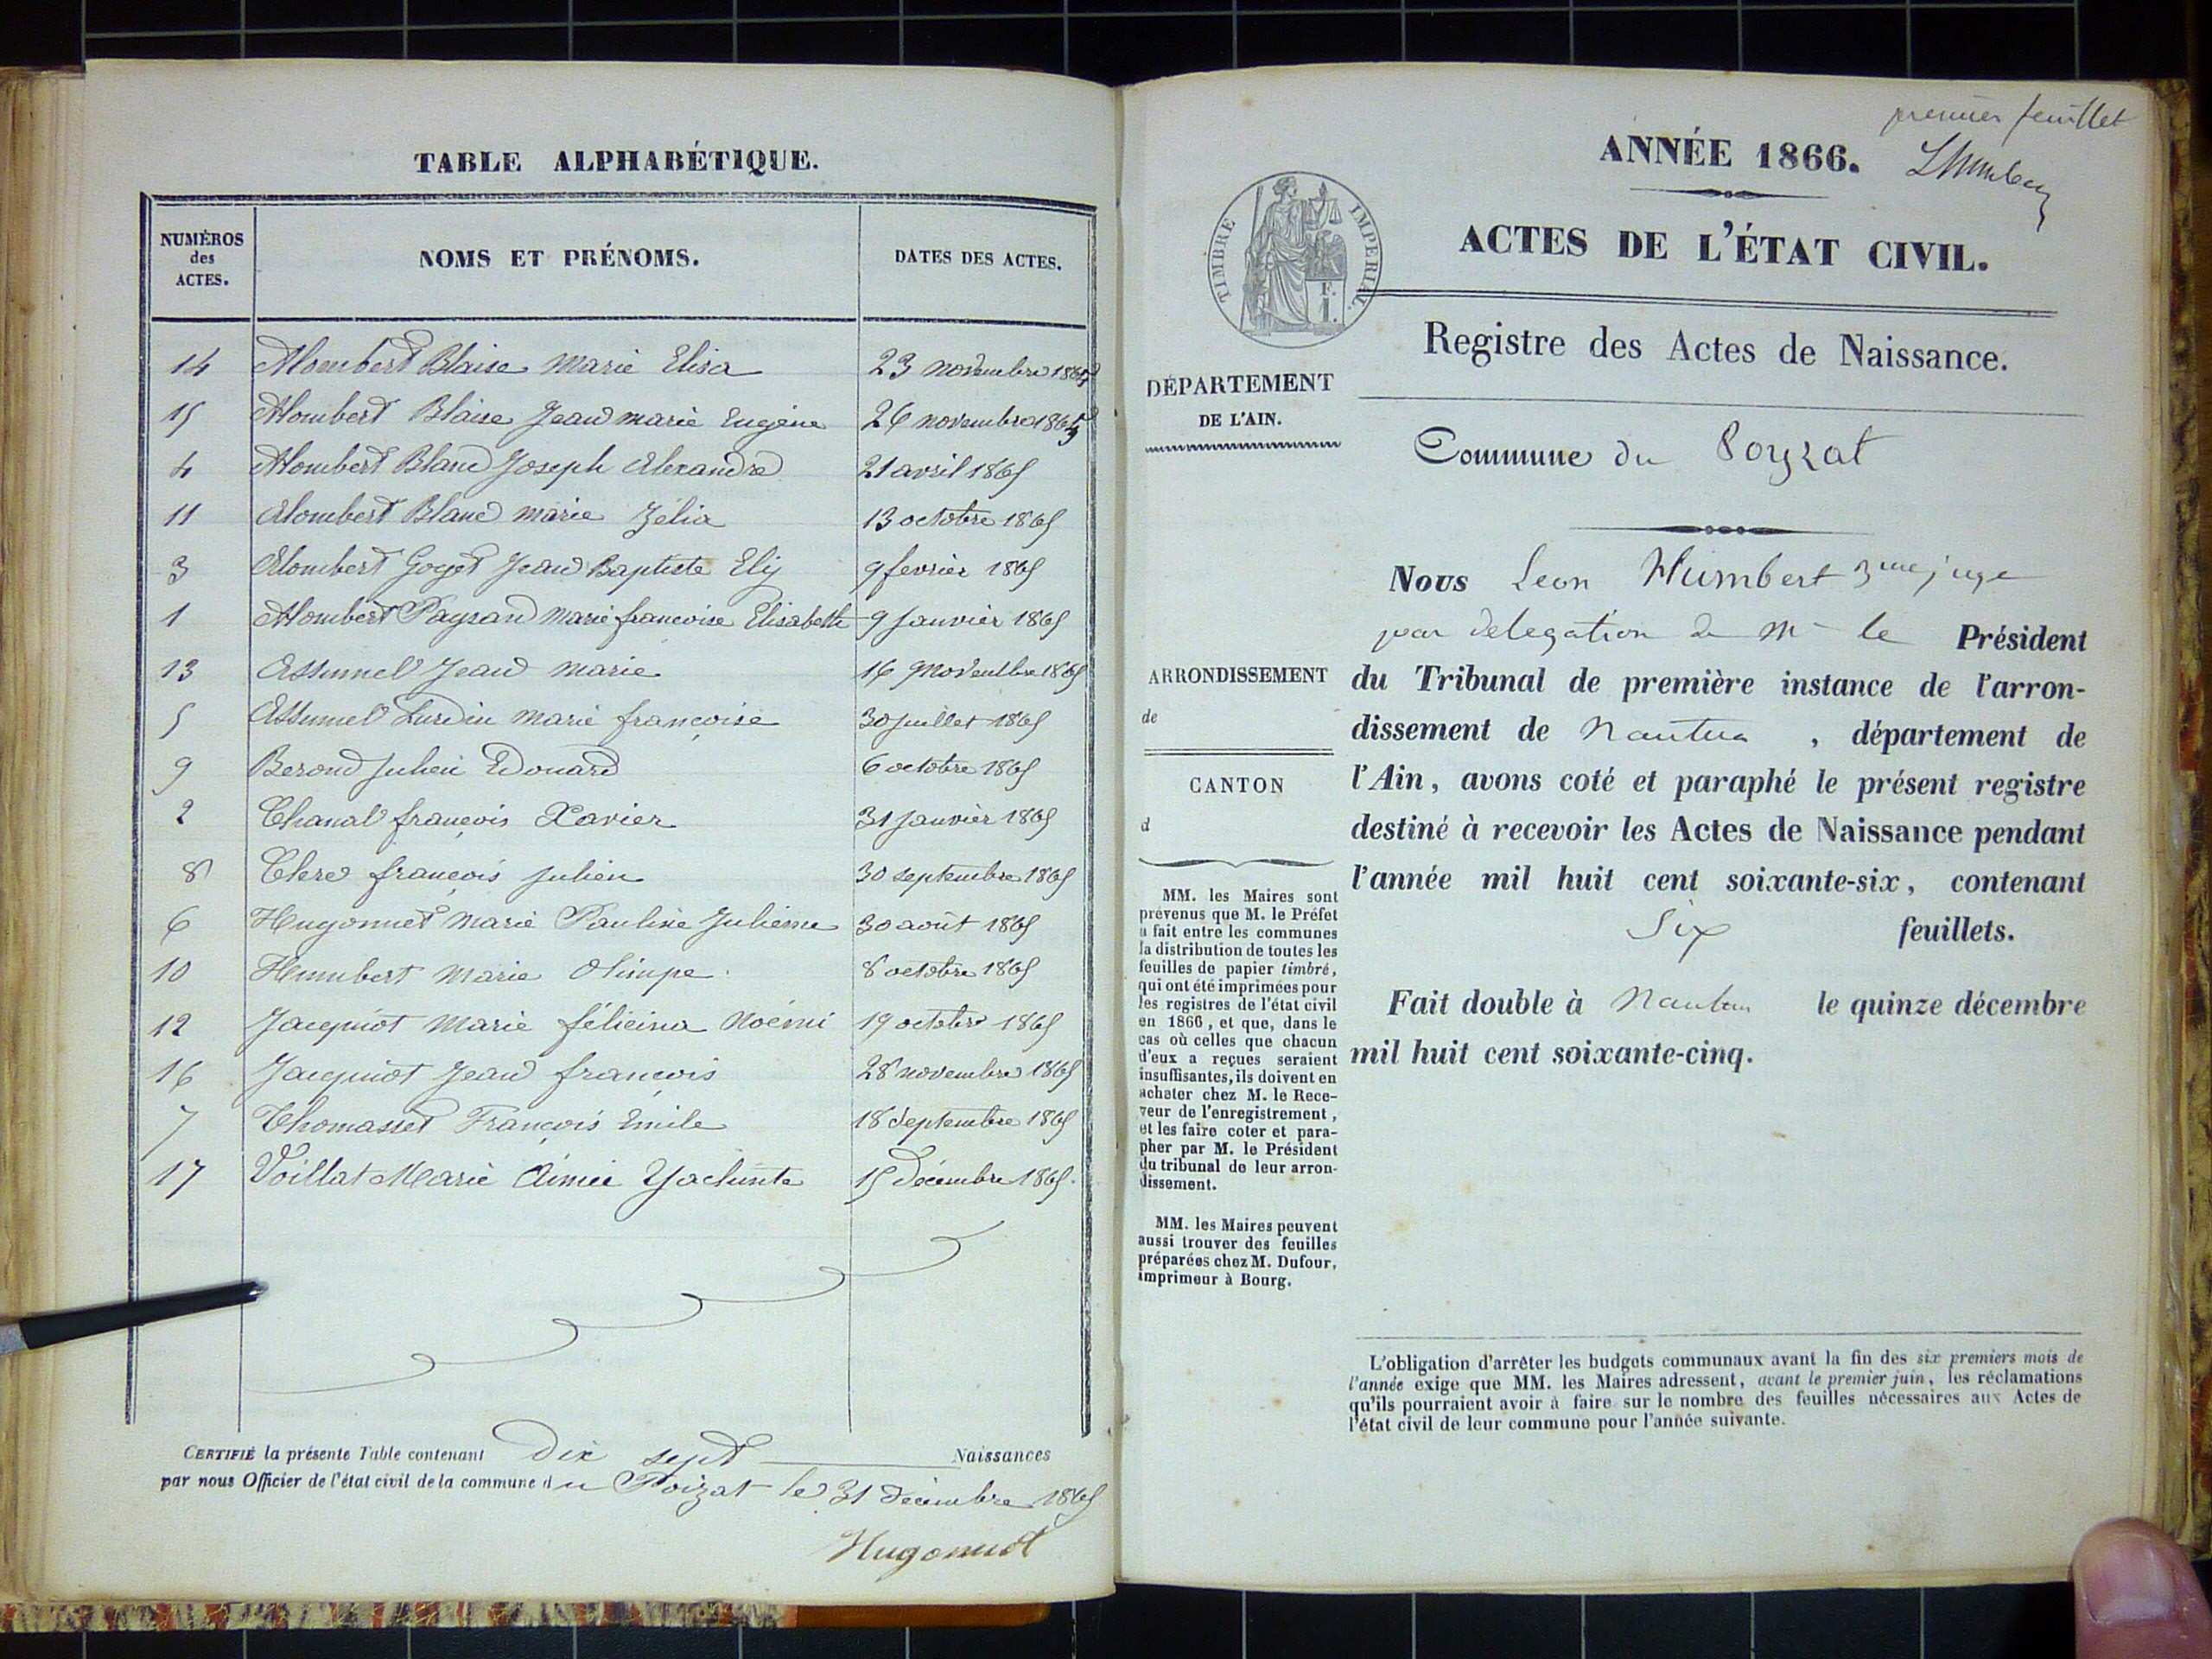 TABLE ALPHABÉTIQUE.
NUMÉROS des ACTES.
NOMS ET PRÉNOMS.
DATES DES ACTES.
14 Alombert Blaise Marie Elisa 23 novembre 1865
15 Alombert Blaise Jean marie Eugène 26 novembre 1865
4 Alombert Blanc Joseph Alexandre 21 avril 1865
11 Alombert Blanc marie Zélia 13 octobre 1865
3 Alombert Goget Jean Baptiste Ely 9 fevrier 1865
1 Alombert Paysan Marie francoise Elisabeth 9 Janvier 1865
13 Assumel Jean Marie 16 Novembre 1865
5 Assumel Lurdin Marie françoise 30 Juillet 1865
9 Berond Julien Edouard 6 octobre 1865
2 Chanal françois Xavier 31 Janvier 1865
8 Clerc françois Julien 30 septembre 1865
6 Hugonnet Marie Pauline Julienne 30 août 1865
10 Humbert Marie Olimpe 8 octobre 1865
12 Jacquiot Marie félicina Noémi 19 octobre 1865
16 Jacquiot Jean françois 28 novembre 1865
7 Thomasset François Emile 18 Septembre 1865
17 Voillat Marie Aimée Yachinte 15 Décembre 1865.
CERTIFIÉ la présente Table contenant Dix sept Naissances
par nous Officier de l'état civil de la commune du Poizat le 31 Décembre 1865
Hugonnet
premier feuillet
ANNÉE 1866.
LHumbert
TIMBRE IMPERIAL
F.
1.
ACTES DE L'ÉTAT CIVIL.
Registre des Actes de Naissance.
DÉPARTEMENT
DE L'AIN.
Commune du Poyzat
Nous Leon Humbert 3me juge
par delegation de Mr le Président
du Tribunal de première instance de l'arron-
dissement de Nantua , département de
l'Ain, avons coté et paraphé le présent registre
destiné à recevoir les Actes de Naissance pendant
l'année mil huit cent soixante-six, contenant
Six feuillets.
Fait double à Nantua le quinze décembre
mil huit cent soixante-cinq.
ARRONDISSEMENT
de
CANTON
d
MM. les Maires sont
prévenus que M. le Préfet
a fait entre les communes
la distribution de toutes les
feuilles de papier timbré,
qui ont été imprimées pour
les registres de l'état civil
en 1866, et que, dans le
cas où celles que chacun
d'eux a reçues seraient
insuffisantes, ils doivent en
acheter chez M. le Rece-
veur de l'enregistrement,
et les faire coter et para-
pher par M. le Président
du tribunal de leur arron-
dissement.
MM. les Maires peuvent
aussi trouver des feuilles
préparées chez M. Dufour,
imprimeur à Bourg.
L'obligation d'arrêter les budgets communaux avant la fin des six premiers mois de
l'année exige que MM. les Maires adressent, avant le premier juin, les réclamations
qu'ils pourraient avoir à faire sur le nombre des feuilles nécessaires aux Actes de
l'état civil de leur commune pour l'année suivante.